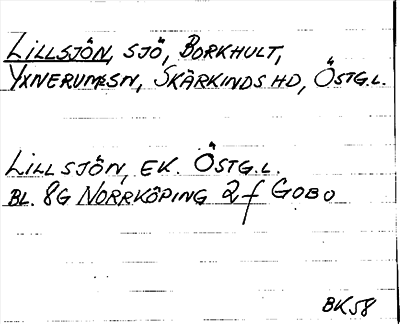 LILLSJÖN, SJÖ, BORKHULT,
YXNERUMSSN, SKÄRKINDS HD, ÖSTG.L.
LILLSJÖN, EK. ÖSTG.L.
BL. 8G NORRKÖPING 2f GOBO
BK58